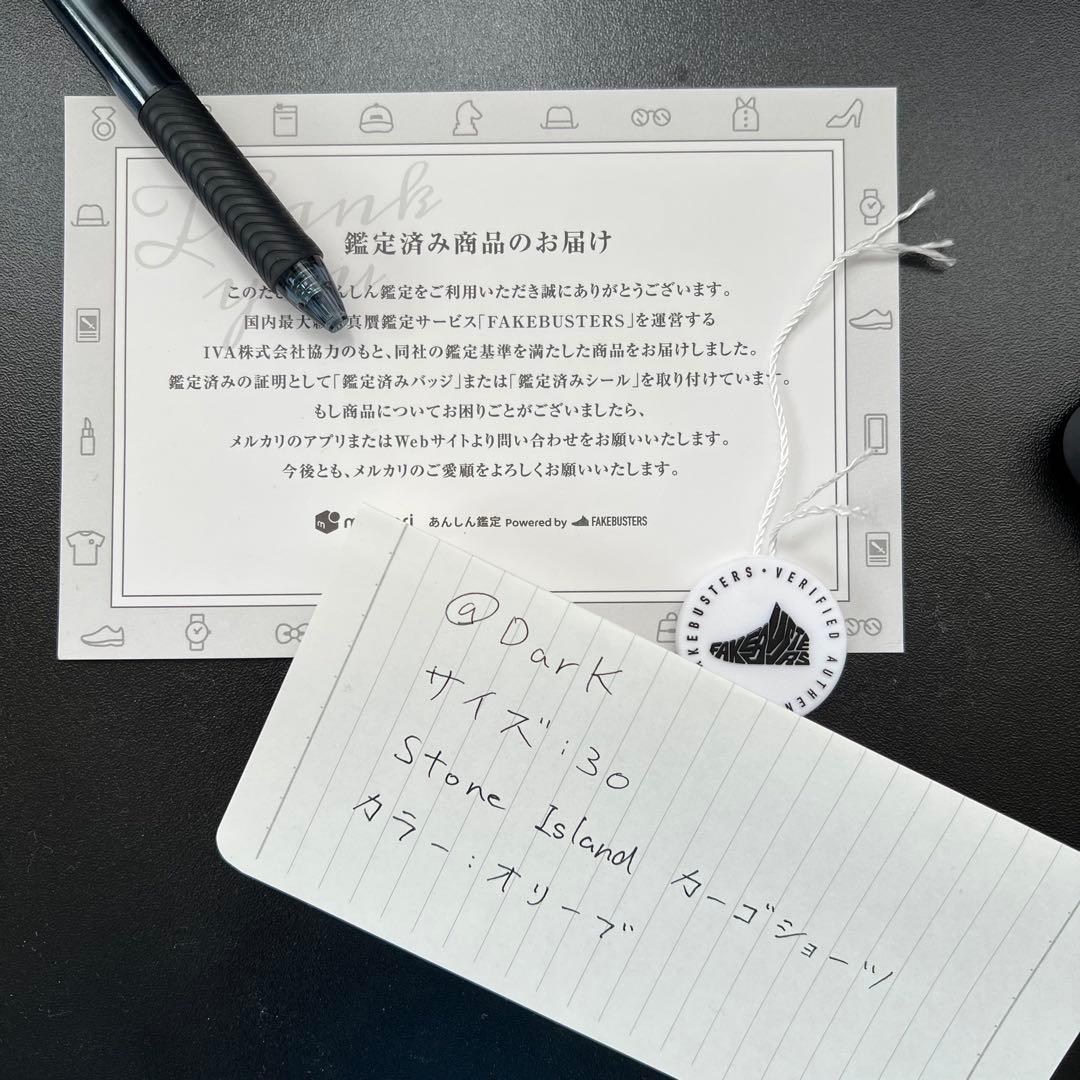 Thank you
鑑定済み商品のお届け
このた んしん鑑定をご利用いただき誠にありがとうございます。
国内最大 真贋鑑定サービス「FAKEBUSTERS」を運営する
IVA株式会社協力のもと、同社の鑑定基準を満たした商品をお届けしました。
鑑定済みの証明として「鑑定済みバッジ」または「鑑定済みシール」を取り付けています。
もし商品についてお困りごとがございましたら、
メルカリのアプリまたはWebサイトより問い合わせをお願いいたします。
今後とも、メルカリのご愛顧をよろしくお願いいたします。
あんしん鑑定 Powered by FAKEBUSTERS
FAKEBUSTERS • VERIFIED AUTHEN
FAKEBUSTERS
@Dark
サイズ:30
Stone Island カーゴショーツ
カラー:オリーブ